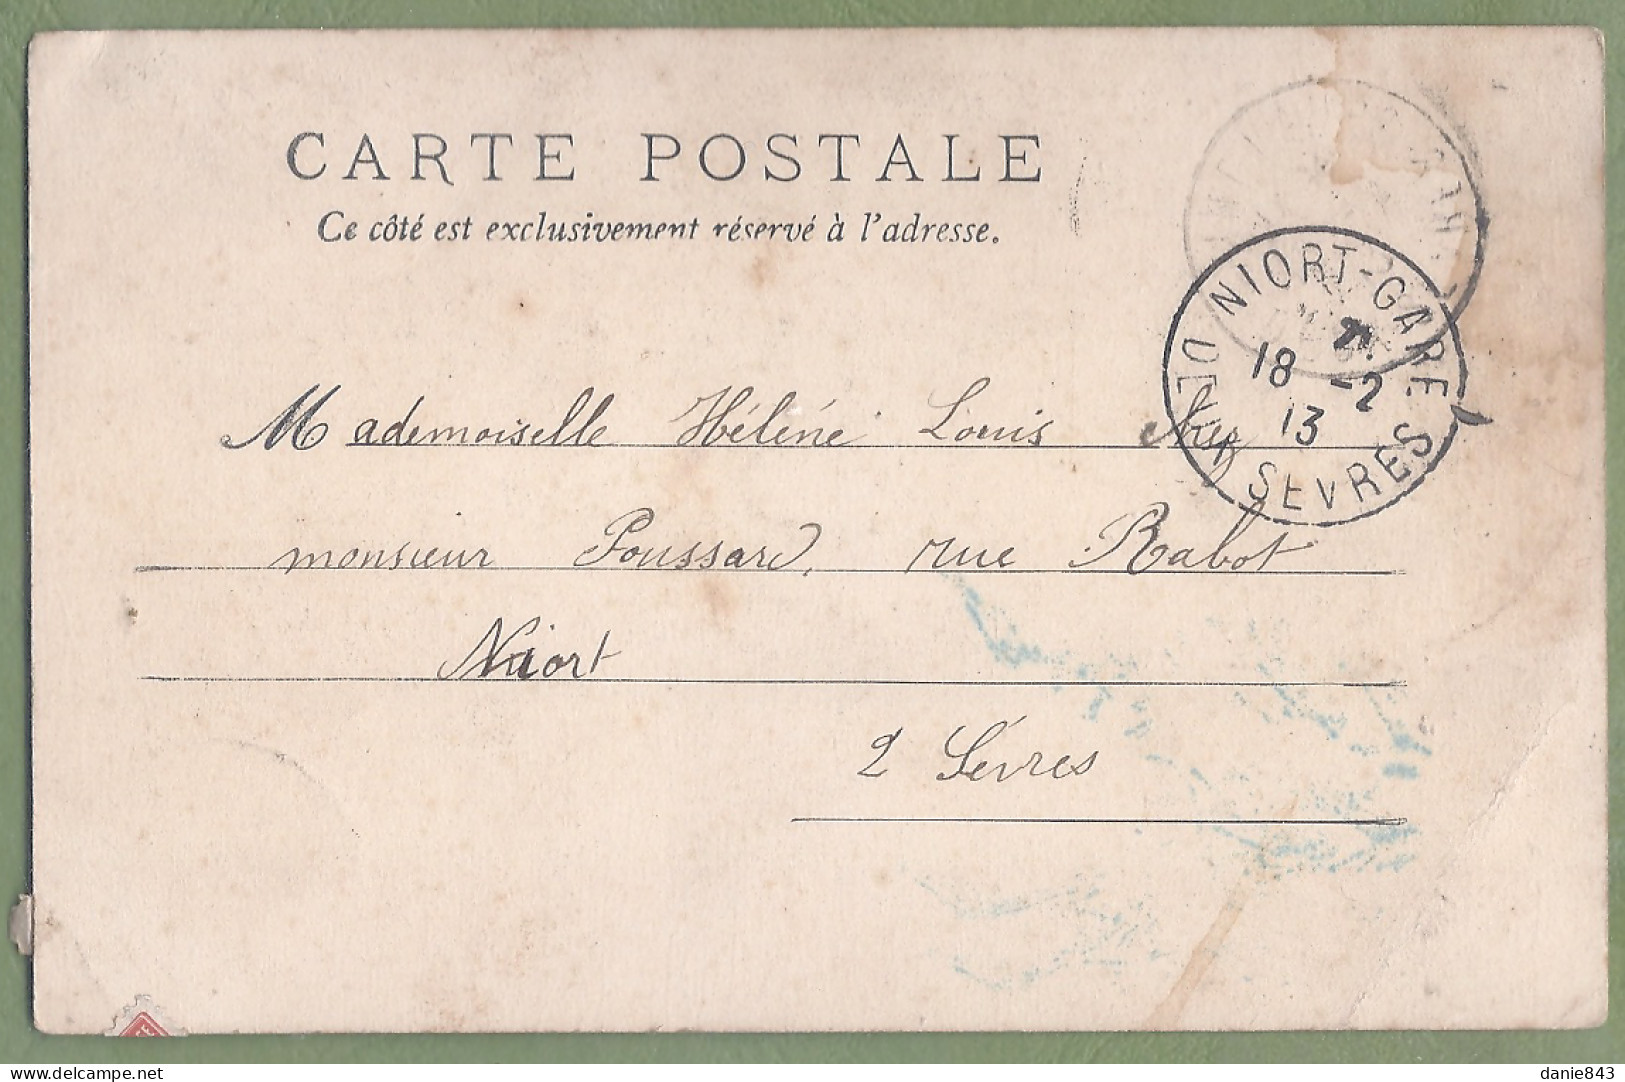 CARTE POSTALE
Ce côté est exclusivement réservé à l'adresse.
NIORT-GARE
18 -2
13
DEUX SEVRES
Mademoiselle Hélène Louis chez
monsieur Poussard, rue Rabot
Niort
2 Sévres
danie843